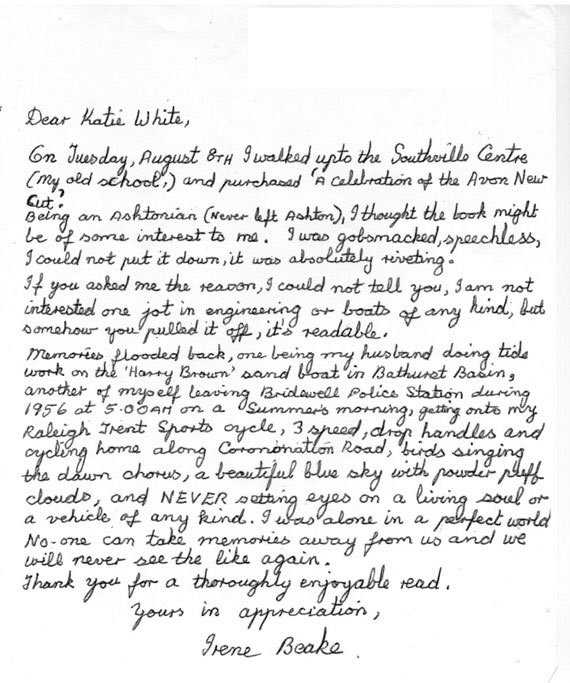 Dear Katie White,
On Tuesday, August 8TH I walked upto the Southville Centre
(My old school,) and purchased 'A celebration of the Avon New
Cut?
Being an Ashtonian (Never left Ashton), I thought the book might
be of some interest to me. I was gobsmacked, speechless,
I could not put it down, it was absolutely riveting.
If you asked me the reason, I could not tell you, I am not
interested one jot in engineering or boats of any kind, but
somehow you pulled it off, it's readable.
Memories flooded back, one being my husband doing tide
work on the 'Harry Brown' sand boat in Bathurst Basin,
another of myself leaving Bridewell Police Station during
1956 at 5.00AM on a Summer's morning, getting onto my
Raleigh Trent Sports cycle, 3 speed, drop handles and
cycling home along Corononation Road, birds singing
the dawn chorus, a beautiful blue sky with powder puff
clouds, and NEVER setting eyes on a living soul or
a vehicle of any kind. I was alone in a perfect world
No-one can take memories away from us and we
will never see the like again.
Thank you for a thoroughly enjoyable read.
Yours in appreciation,
Irene Beake.